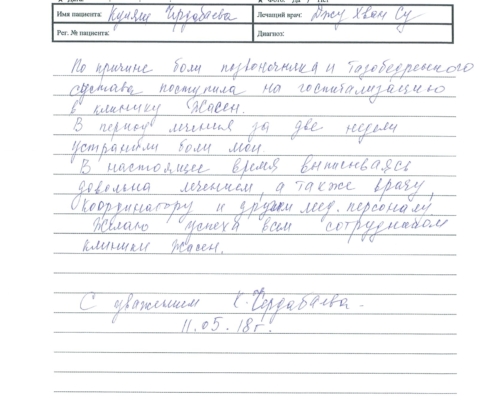 Имя пациента: Куляш Чердабаева Лечащий врач: Джу Хван Су
Рег. № пациента: Диагноз:
По причине боли позвоночника и тазобедренного
сустава поступила на госпитализацию
в клинику Жасен.
В период лечения за две недели
устранили боли мои.
В настоящее время выписываясь
довольна лечением, а также врачу,
координатору и другим мед. персоналу
Желаю успеха всем сотрудникам
клиники Жасен.
С уважением К. Чердабаева.
11.05.18г.